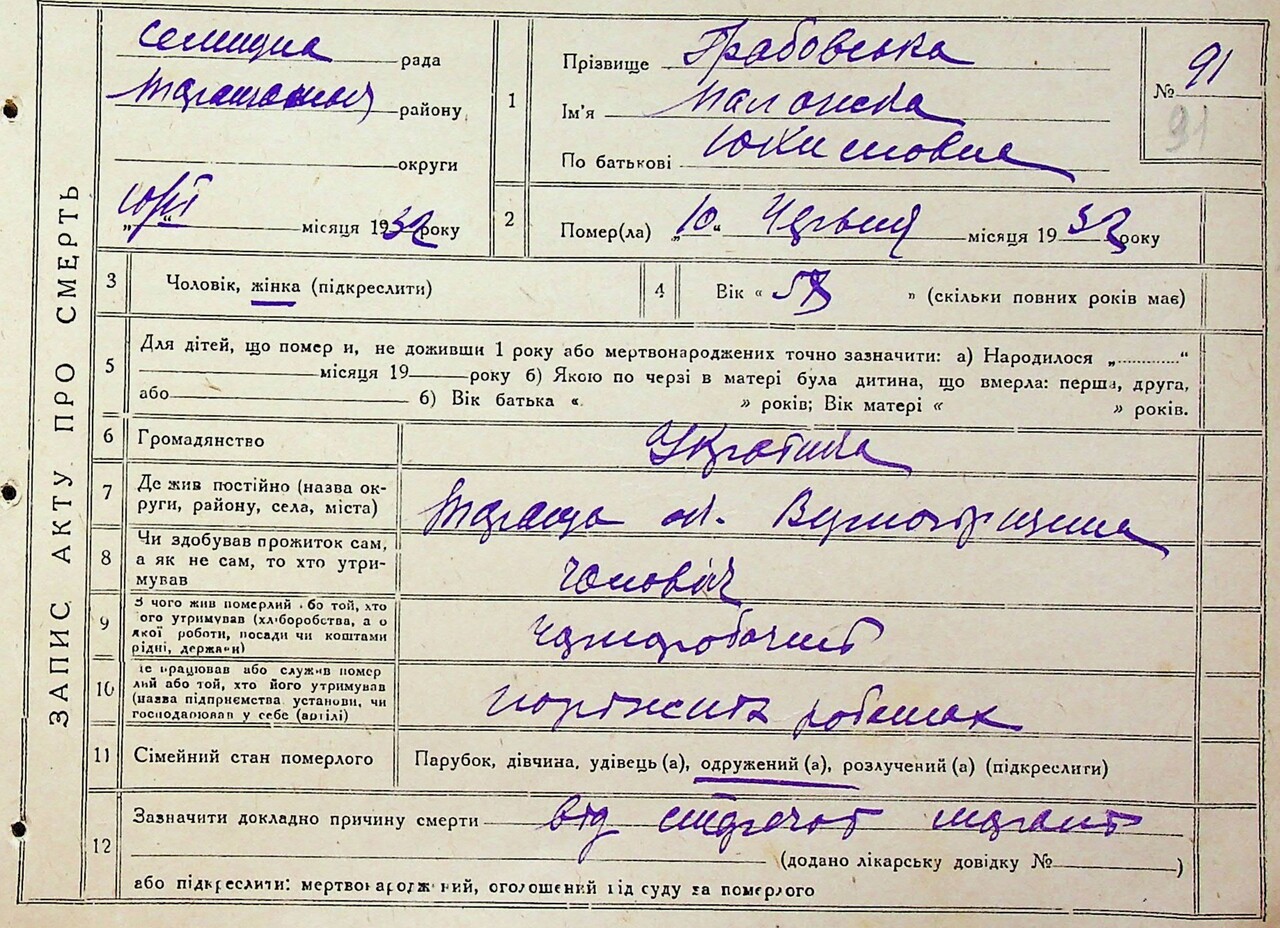 ЗАПИС АКТУ ПРО СМЕРТЬ
Селищна рада
району
округи
місяця 1932 року
1
Прізвище Грабовська
Ім'я
По батькові Юхимовна
№ 91
91
2
Помер(ла) „10“ Червня місяця 1932 року
3
Чоловік, жінка (підкреслити)
4
Вік « » (скільки повних років має)
5
Для дітей, що помер и, не доживши 1 року або мертвонароджених точно зазначити: а) Народилося „............“
місяця 19 року б) Якою по черзі в матері була дитина, що вмерла: перша, друга,
або б) Вік батька «. » років; Вік матері « » років.
6
Громадянство
7
Де жив постійно (назва ок-
руги, району, села, міста)
Тараща
8
Чи здобував прожиток сам,
а як не сам, то хто утри-
мував
чоловік
9
З чого жив померлий або той, хто
його утримував (хліборобства, а о
якої роботи, посади чи коштами
рідні, держави)
чорноробочий
10
Де працював або служив помер
лий або той, хто його утримував
(назва підприємства установи, чи
господарював у себе (артілі)
11
Сімейний стан померлого
Парубок, дівчина, удівець (а), одружений (а), розлучений (а) (підкреслити)
12
Зазначити докладно причину смерти від
(додано лікарську довідку № )
або підкреслити: мертвонароджений, оголошений під суду за померлого